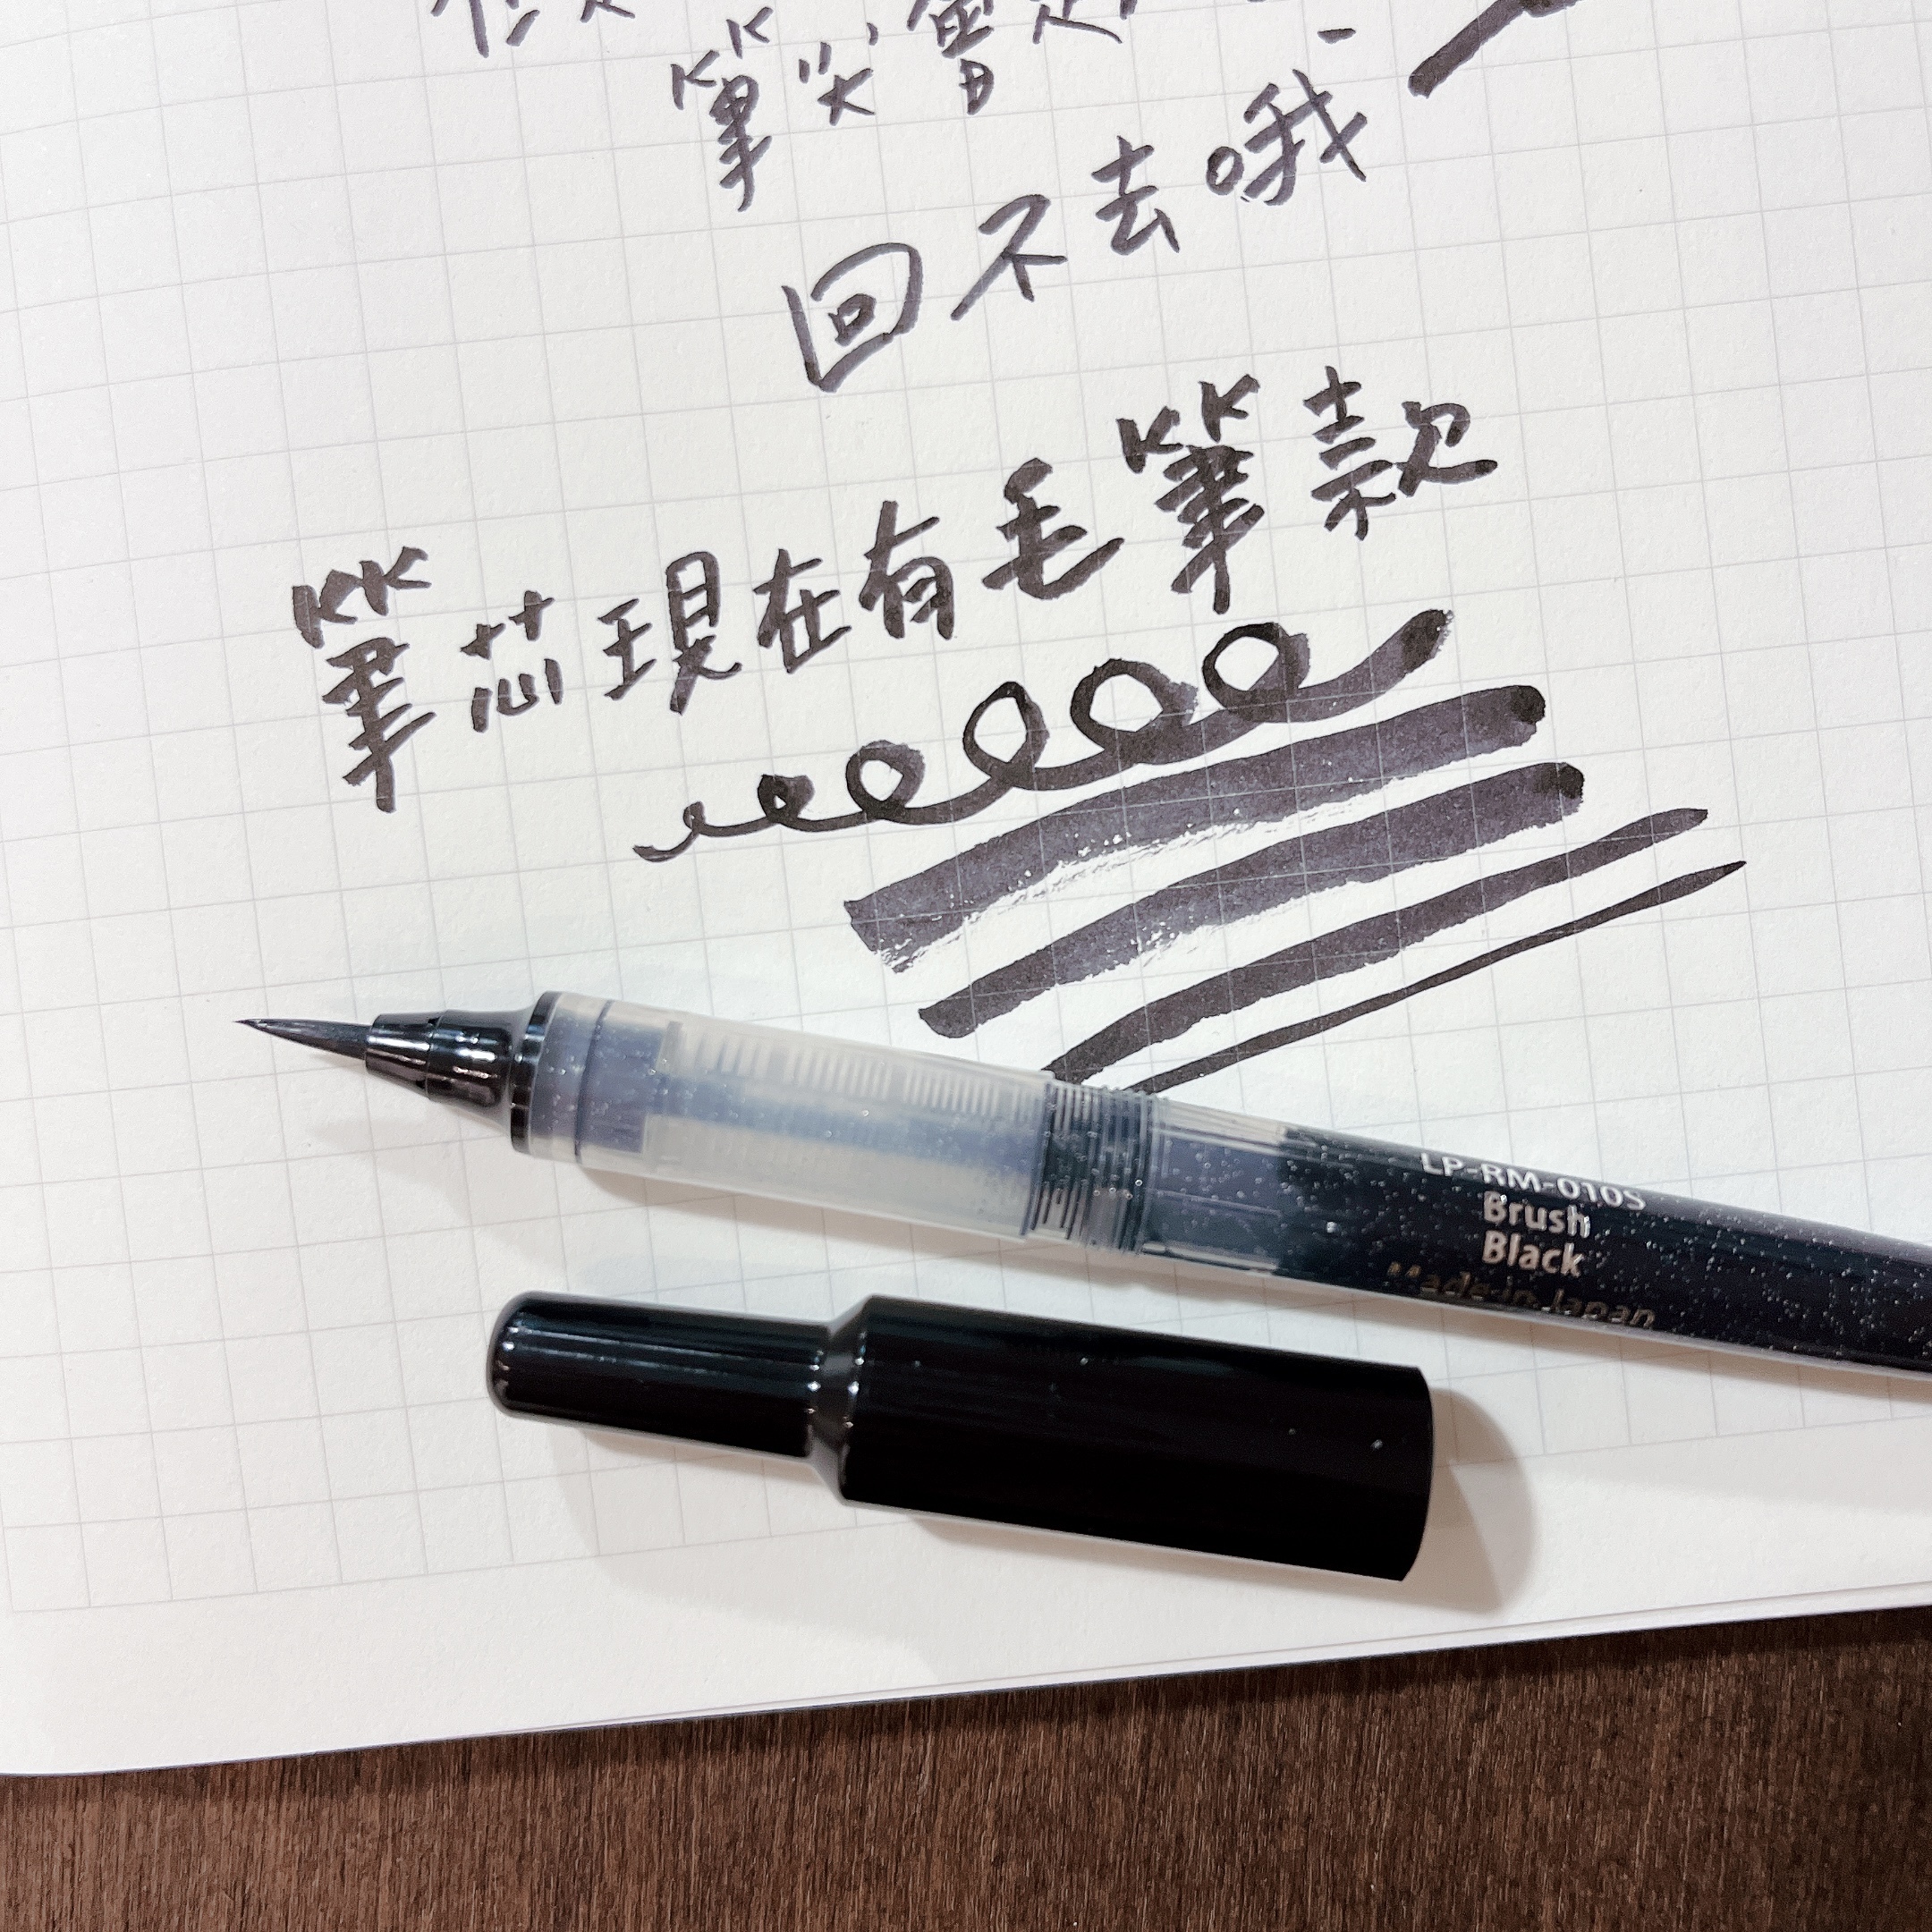 但是
筆尖會
回不去哦
筆芯現在有毛筆款
LP-RM-010S
Brush
Black
Made in Japan